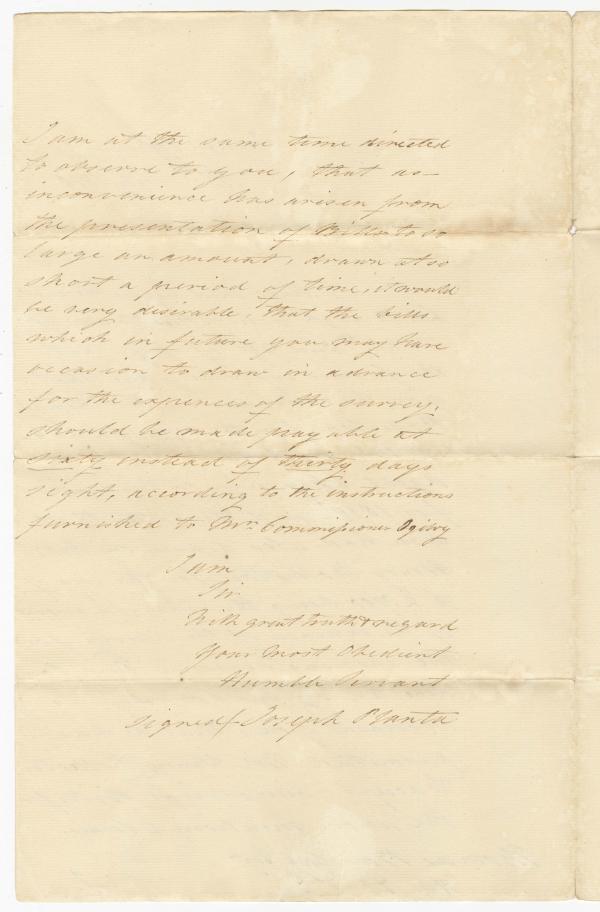 I am at the same time directed
to observe to you, that as
inconvenience has arisen from
the presentation of Bills to so
large an amount, drawn at so
short a period of time, it would
be very desirable, that the bills
which in future you may have
occasion to draw in advance
for the expences of the survey,
should be made payable at
sixty instead of thirty days
sight, according to the instructions
furnished to Mr. Commissioner Ogilvy
I am
Sir
With great truth & regard
Your Most Obedient
Humble Servant
signed/- Joseph Planta